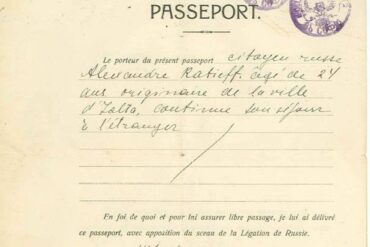 PASSEPORT.
Le porteur du présent passeport citoyen russe
Alexandre Ratieff, âgé de 24
ans originaire de la ville
d'Ialta, continue son séjour
à l'étranger
En foi de quoi et pour lui assurer libre passage, je lui ai délivré
ce passeport, avec apposition du sceau de la Légation de Russie.